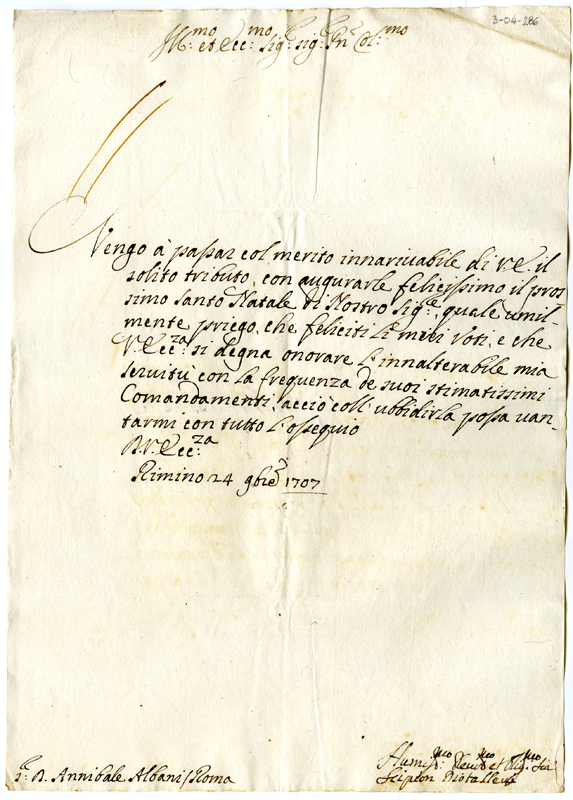 3-04-286
Ill:mo et Ecc:mo Sig:e Sig:e Pn̄e Col:mo
Vengo à passar col merito innarivabile di V.E. il
solito tributo, con augurarle felicissimo il pros-
simo Santo Natale di Nostro Sig:e, quale umil-
mente priego, che feliciti li miei voti, e che
V. Ecc:za si degna onorare l'innalterabile mia
servitù con la frequenza de suoi stimatissimi
Comandamenti, acciò coll'ubbidirla possa van-
tarmi con tutto l'ossequio
D.V. Ecc:za
Rimino 24 9bre 1707
S:e D. Annibale Albani / Roma
Humiliss:mo Devot:mo et Oblig:mo Ser
Scipion Diotallevi